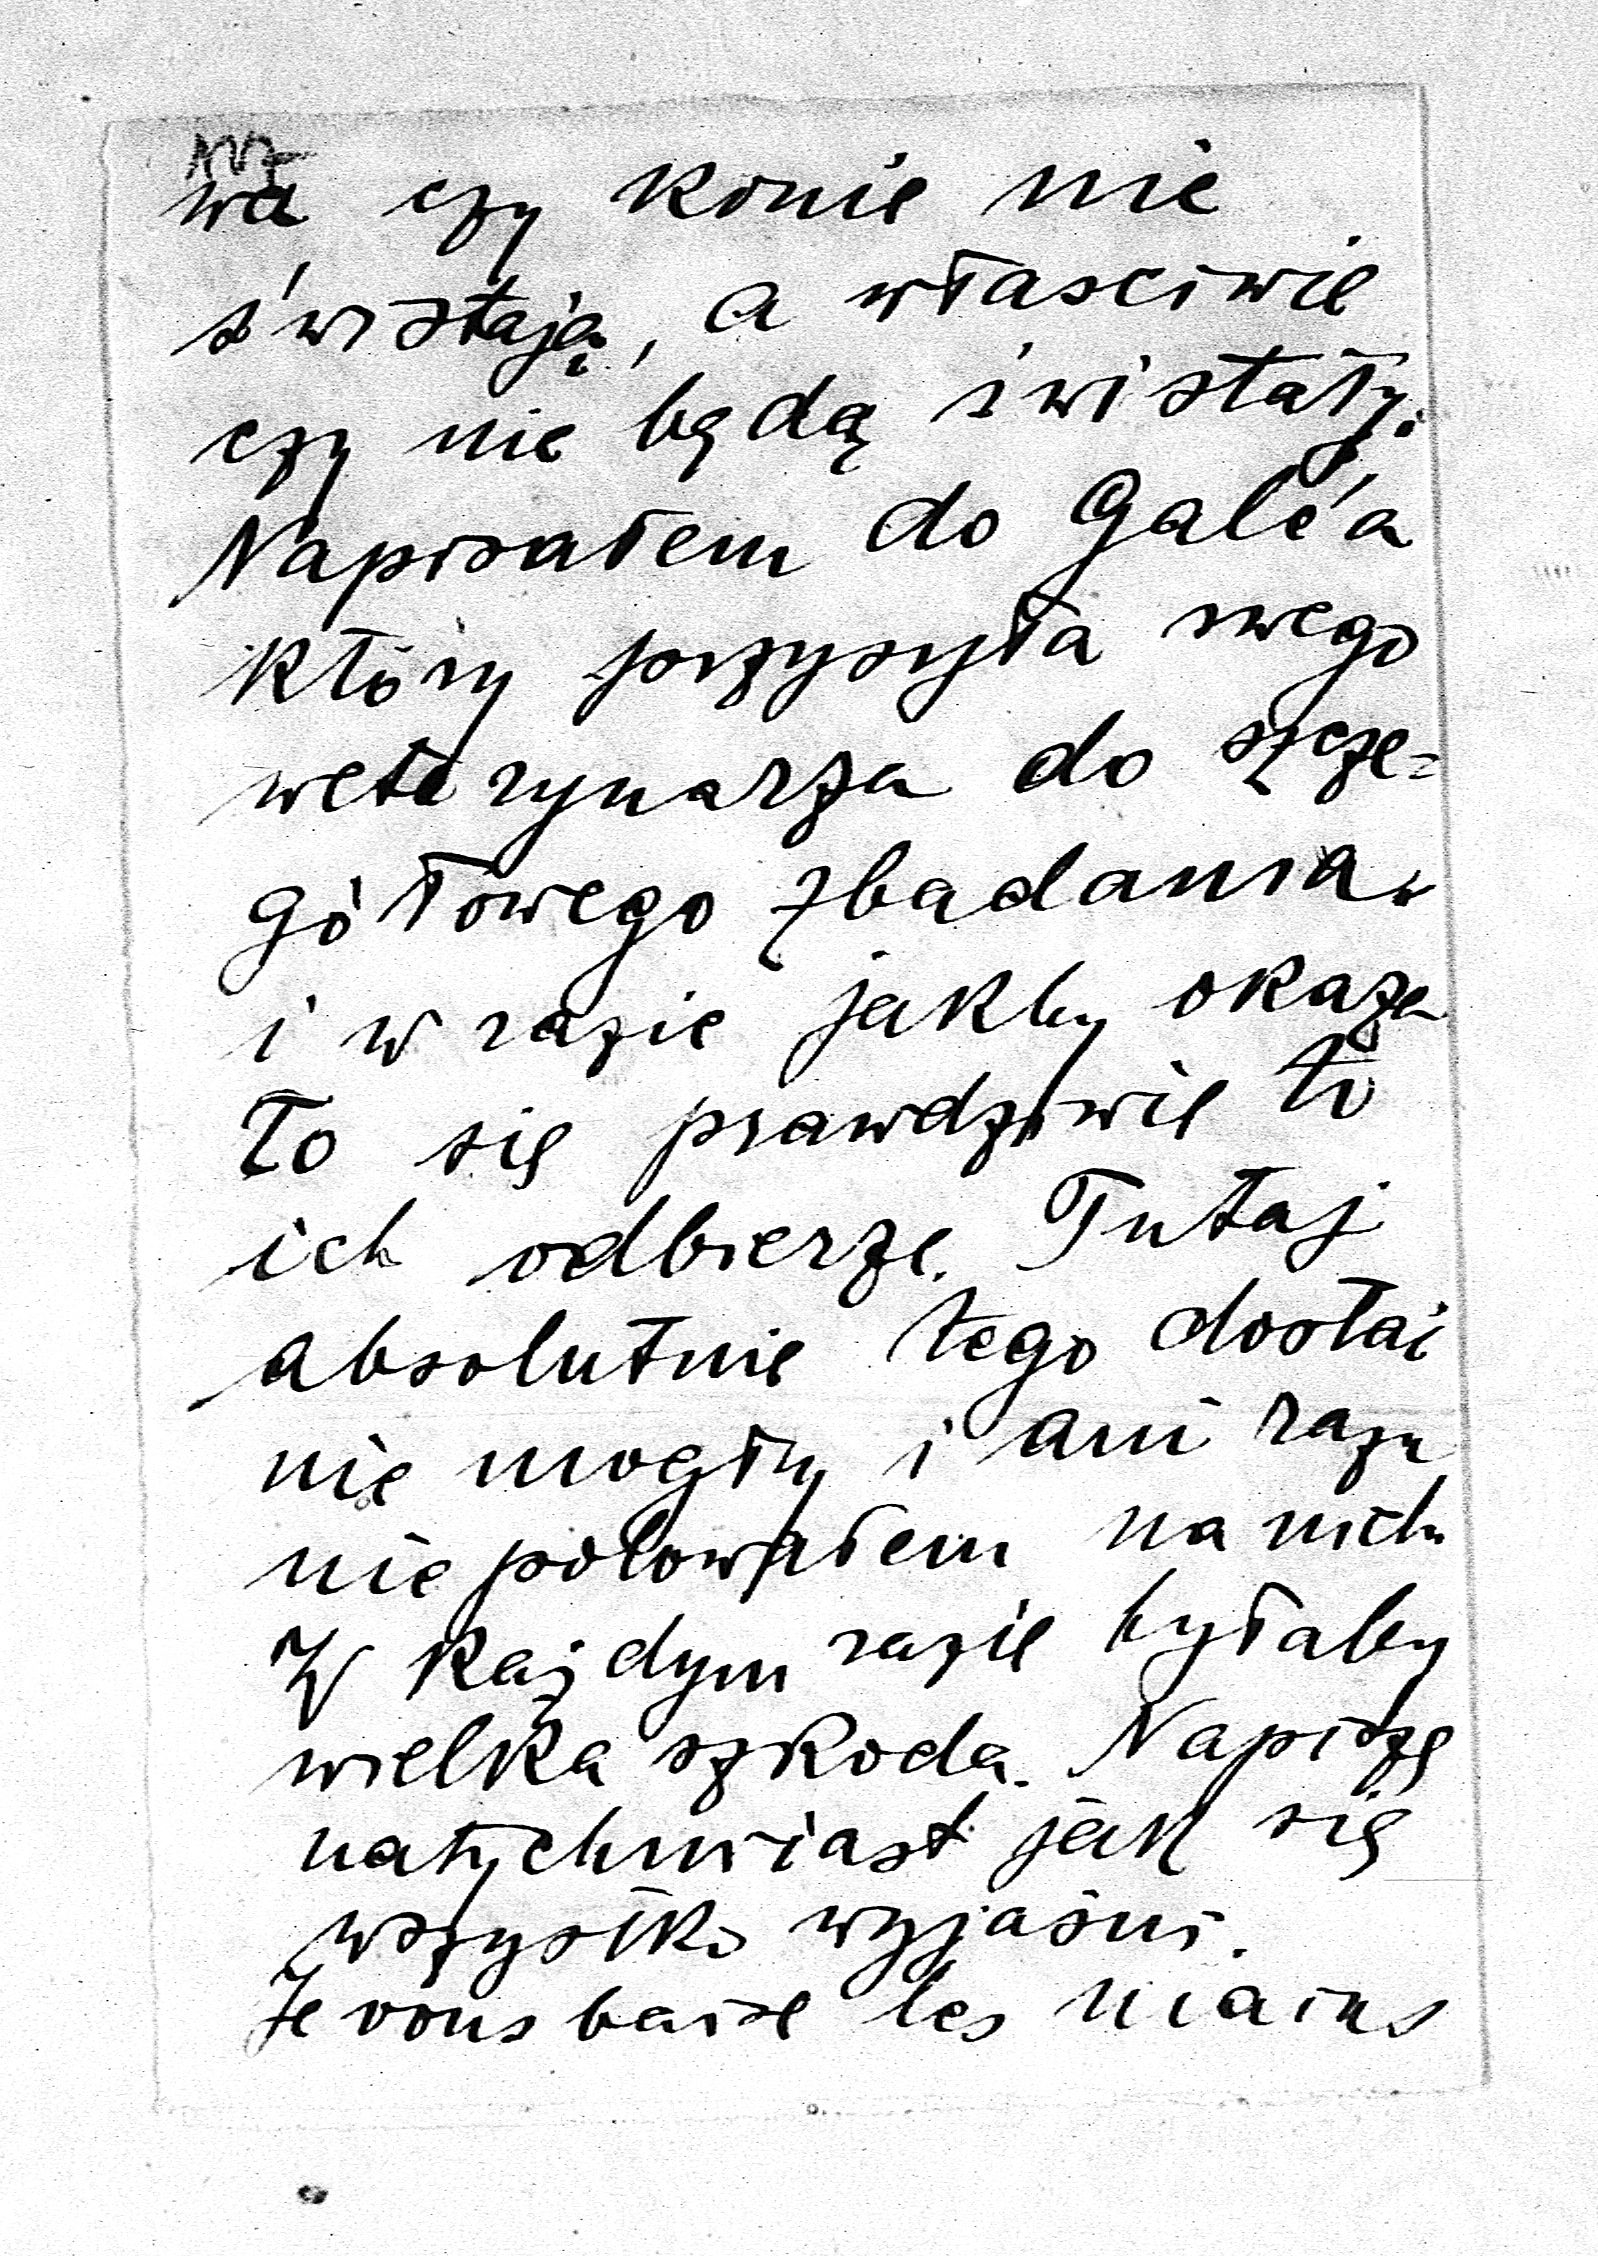 wa czy konie nie
świstają, a właściwie
czy nie będą świstały.
Napisałem do Galé'a
który przysyła swego
weterynarza do szcze=
gółowego zbadania
i w razie jakby okaza
ło się prawdziwie to
ich odbierze. Tutaj
absolutnie tego dostać
nie mogły i ani razu
nie polowałem na nich
W każdym razie byłaby
wielka szkoda. Napiszę
natychmiast jak się
wszystko wyjaśni.
Je vous baise les mains